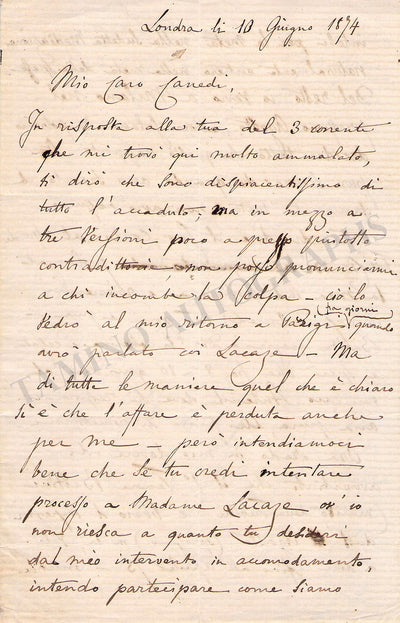 Londra li 10 Giugno 1874
Mio Caro Canedi,
In risposta alla tua del 3 corrente
che mi trovò qui molto ammalato,
ti dirò che sono dispiacentissimo di
tutto l'accaduto; ma in mezzo a
tre versioni poco appresso piuttosto
contradittorie, non posso pronunciarmi
a chi incombe la colpa – ciò lo
fra giorni
vedrò al mio ritorno a Parigi quando
avrò parlato coi Lacaze – Ma
di tutte le maniere quel che è chiaro
si è che l'affare è perduta anche
per me – però intendiamoci
bene che se tu credi intentare
processo a Madame Lacaze ov'io
non riesca a quanto tu desideri
dal mio intervento in accomodamento,
intendo partecipare come siamo
TAMINO AUTOGRAPHS